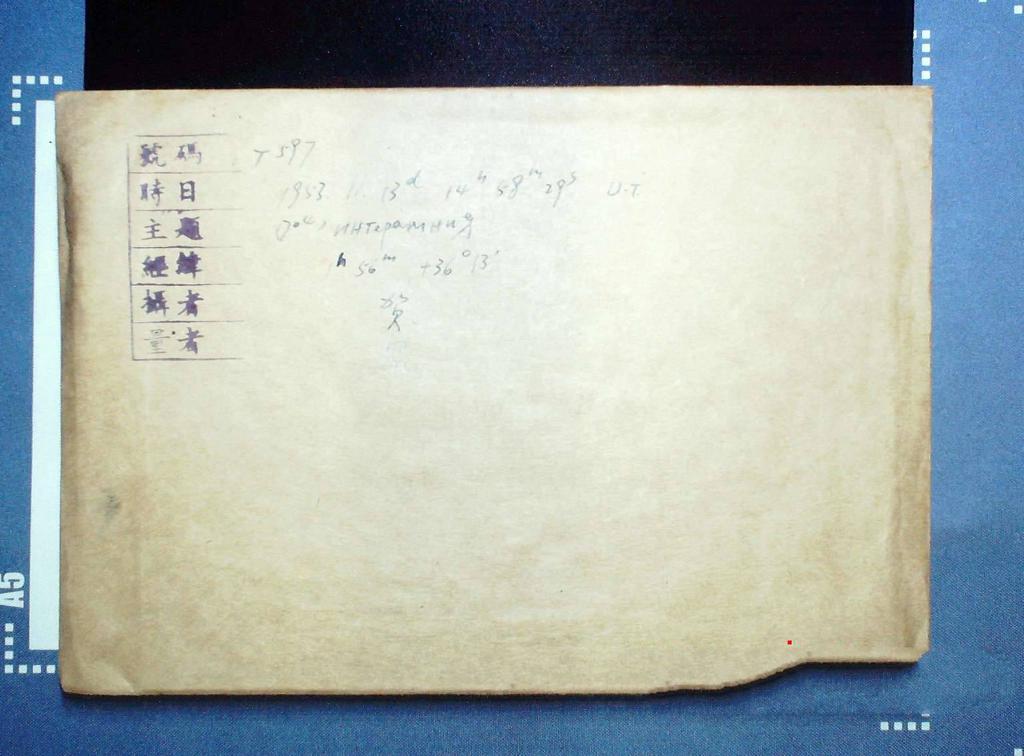 號碼 T 597
時日 1953. 11. 13ᵈ 14ʰ 58ᵐ 29ˢ U.T.
主題 704, интерамния
經緯 1ʰ 56ᵐ +36° 13'
攝者 贺
量者
A5